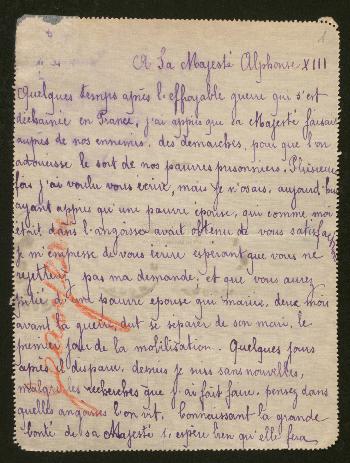 1
A Sa Majesté Alphonse XIII
Quelques temps après l'effroyable guerre qui s'est
déchainée en France, j'ai appris que sa Majesté faisait
auprès de nos ennemis, des démarches, pour que l'on
adoucisse le sort de nos pauvres prisonniers. Plusieurs
fois j'ai voulu vous écrire, mais je n'osais, aujourd'hui
ayant appris qu'une pauvre épouse, qui comme moi
était dans l'angoisse avait obtenu de vous satisfact
je m'empresse de vous écrire espérant que vous ne
rejetterez pas ma demande, et que vous aurez
pitié d'une pauvre épouse qui mariée, deux mois
avant la guerre, dut se séparer de son mari, le
premier jour de la mobilisation. Quelques jours
après il disparu, depuis je suis sans nouvelles,
malgré les recherches que j'ai fait faire, pensez dans
quelles angoisses l'on vit. Connaissant la grande
bonté de sa Majesté j'espère bien qu'elle fera